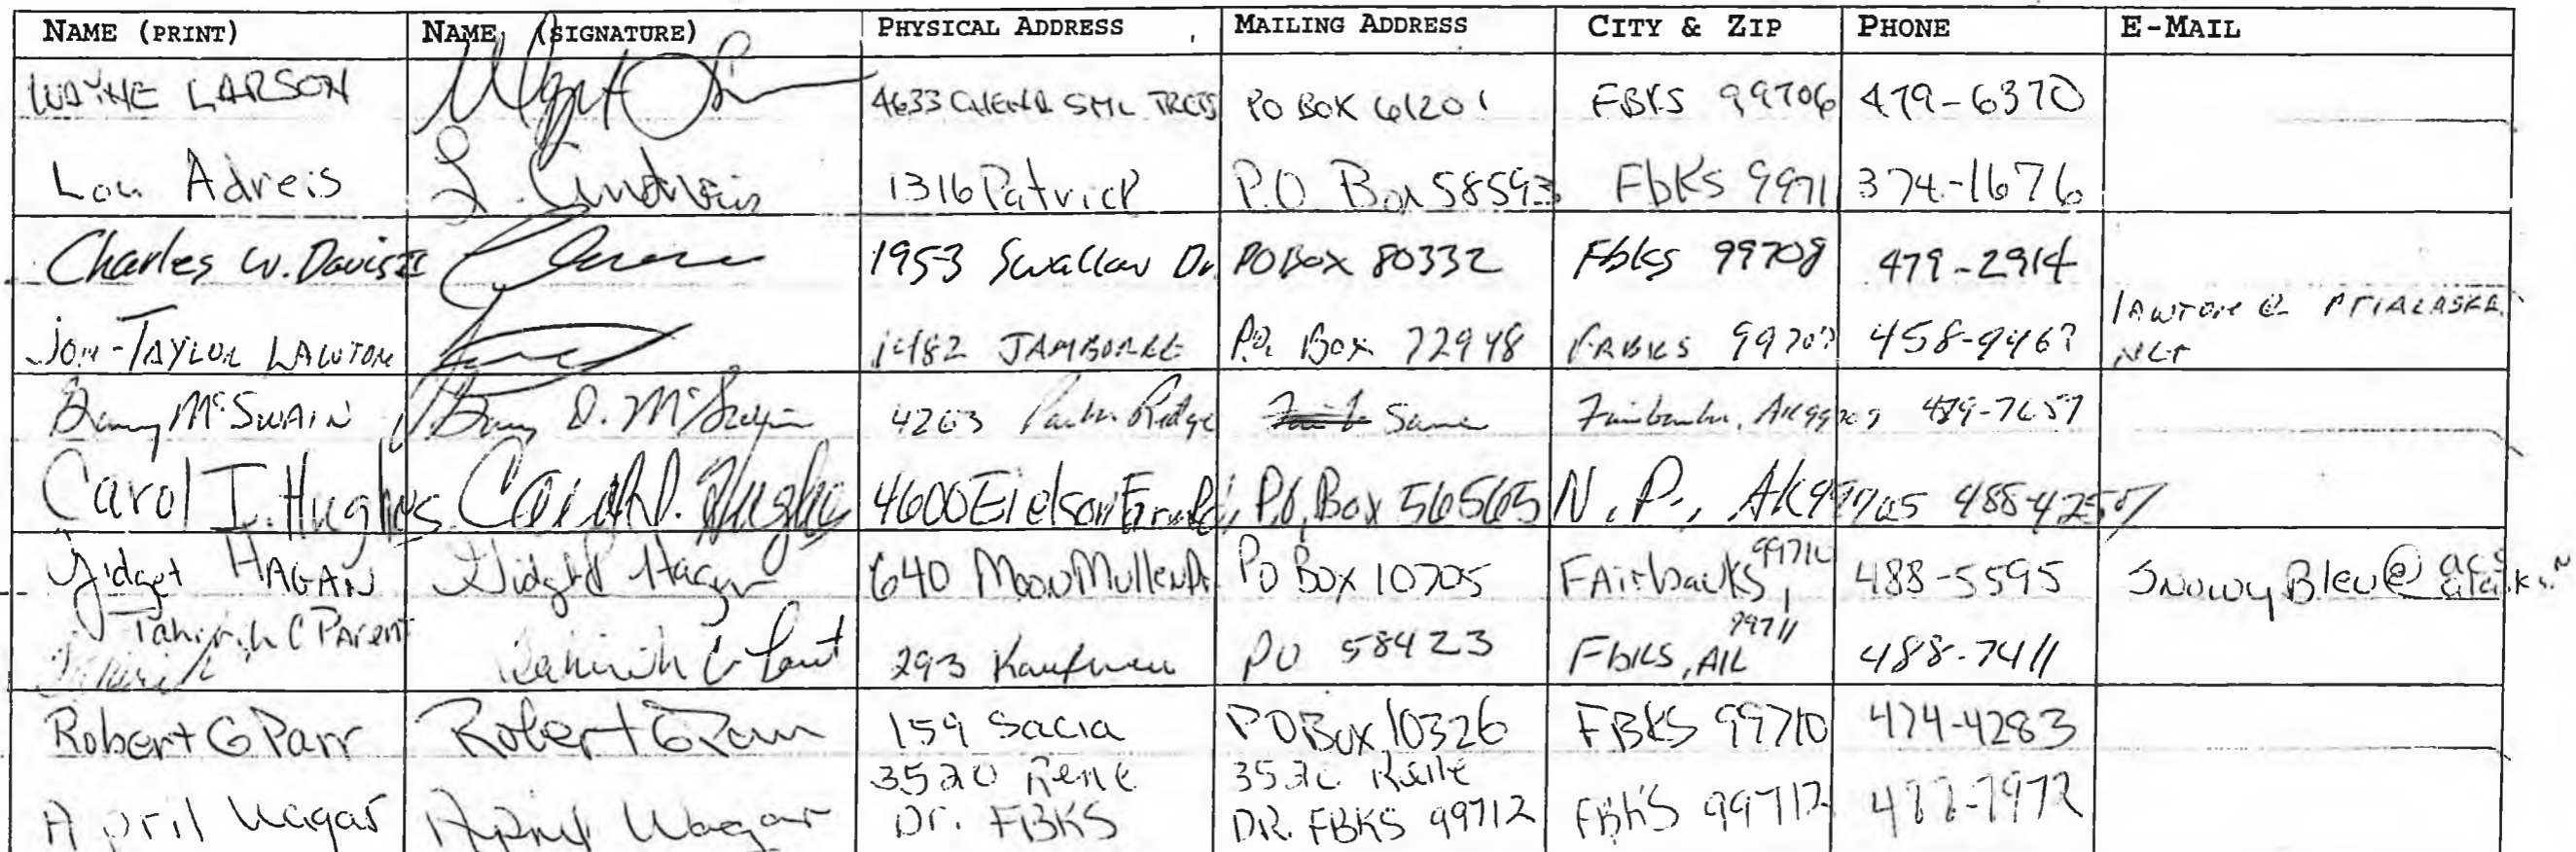 NAME (PRINT) NAME (SIGNATURE) PHYSICAL ADDRESS MAILING ADDRESS CITY & ZIP PHONE E-MAIL
WAYNE LARSON 4633 CHENA SML TRCTS PO BOX 61201 FBKS 99706 479-6370
Lou Adreis L. 1316 Patrick P.O Box 58593 Fbks 9971 374-1676
Charles W. Davis II 1953 Swallow Dr. PO Box 80332 Fbks 99708 479-2914
JON-TAYLOR LAWTON 1482 JAMBOREE P.O. Box 72948 FRBKS 9970? 458-946? lawton @ PTIALASKA.
NET
Barry McSWAIN Barry D. McSwain 4263 Ridge Same Fairbanks, AK 99709 479-7657
Carol I. Hughes Carol I. Hughes 4600 Eielson Farm Rd, P.O. Box 56565 N.P., AK 99705 488-4250
Gidget HAGAN Gidget Hagan 640 Moon Mullen Dr. PO Box 10705 FAirbanks, 99710 488-5595 SnowyBleu@
Tahirih C Parent Tahirih C Parent 293 Kaufman PO 58423 Fbks, AK 99711 488-7411
Robert G Parr Robert G Parr 159 Sacia PO Box 10326 FBKS 99710 474-4283
3520 3520
April Wagar April Wagar Dr. FBKS DR. FBKS 99712 FBKS 99712